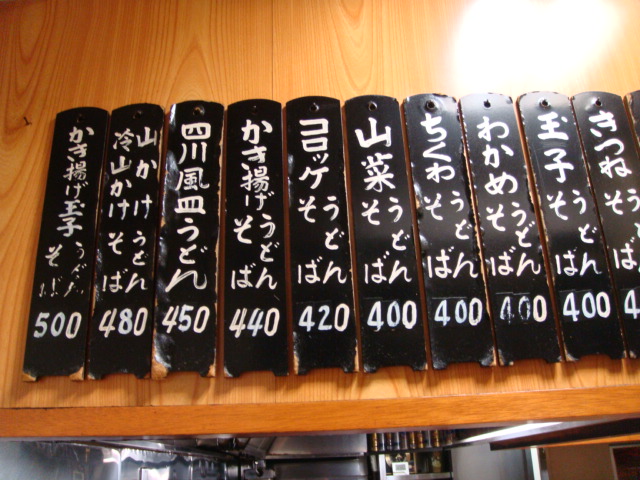 きつね
うどん
そば
玉子
うどん
そば
400
わかめ
うどん
そば
400
ちくわ
うどん
そば
400
山菜
うどん
そば
400
コロッケ
うどん
そば
420
かき揚げ
うどん
そば
440
四川風皿うどん
450
山かけうどん
冷山かけそば
480
かき揚げ玉子
うどん
そば
500